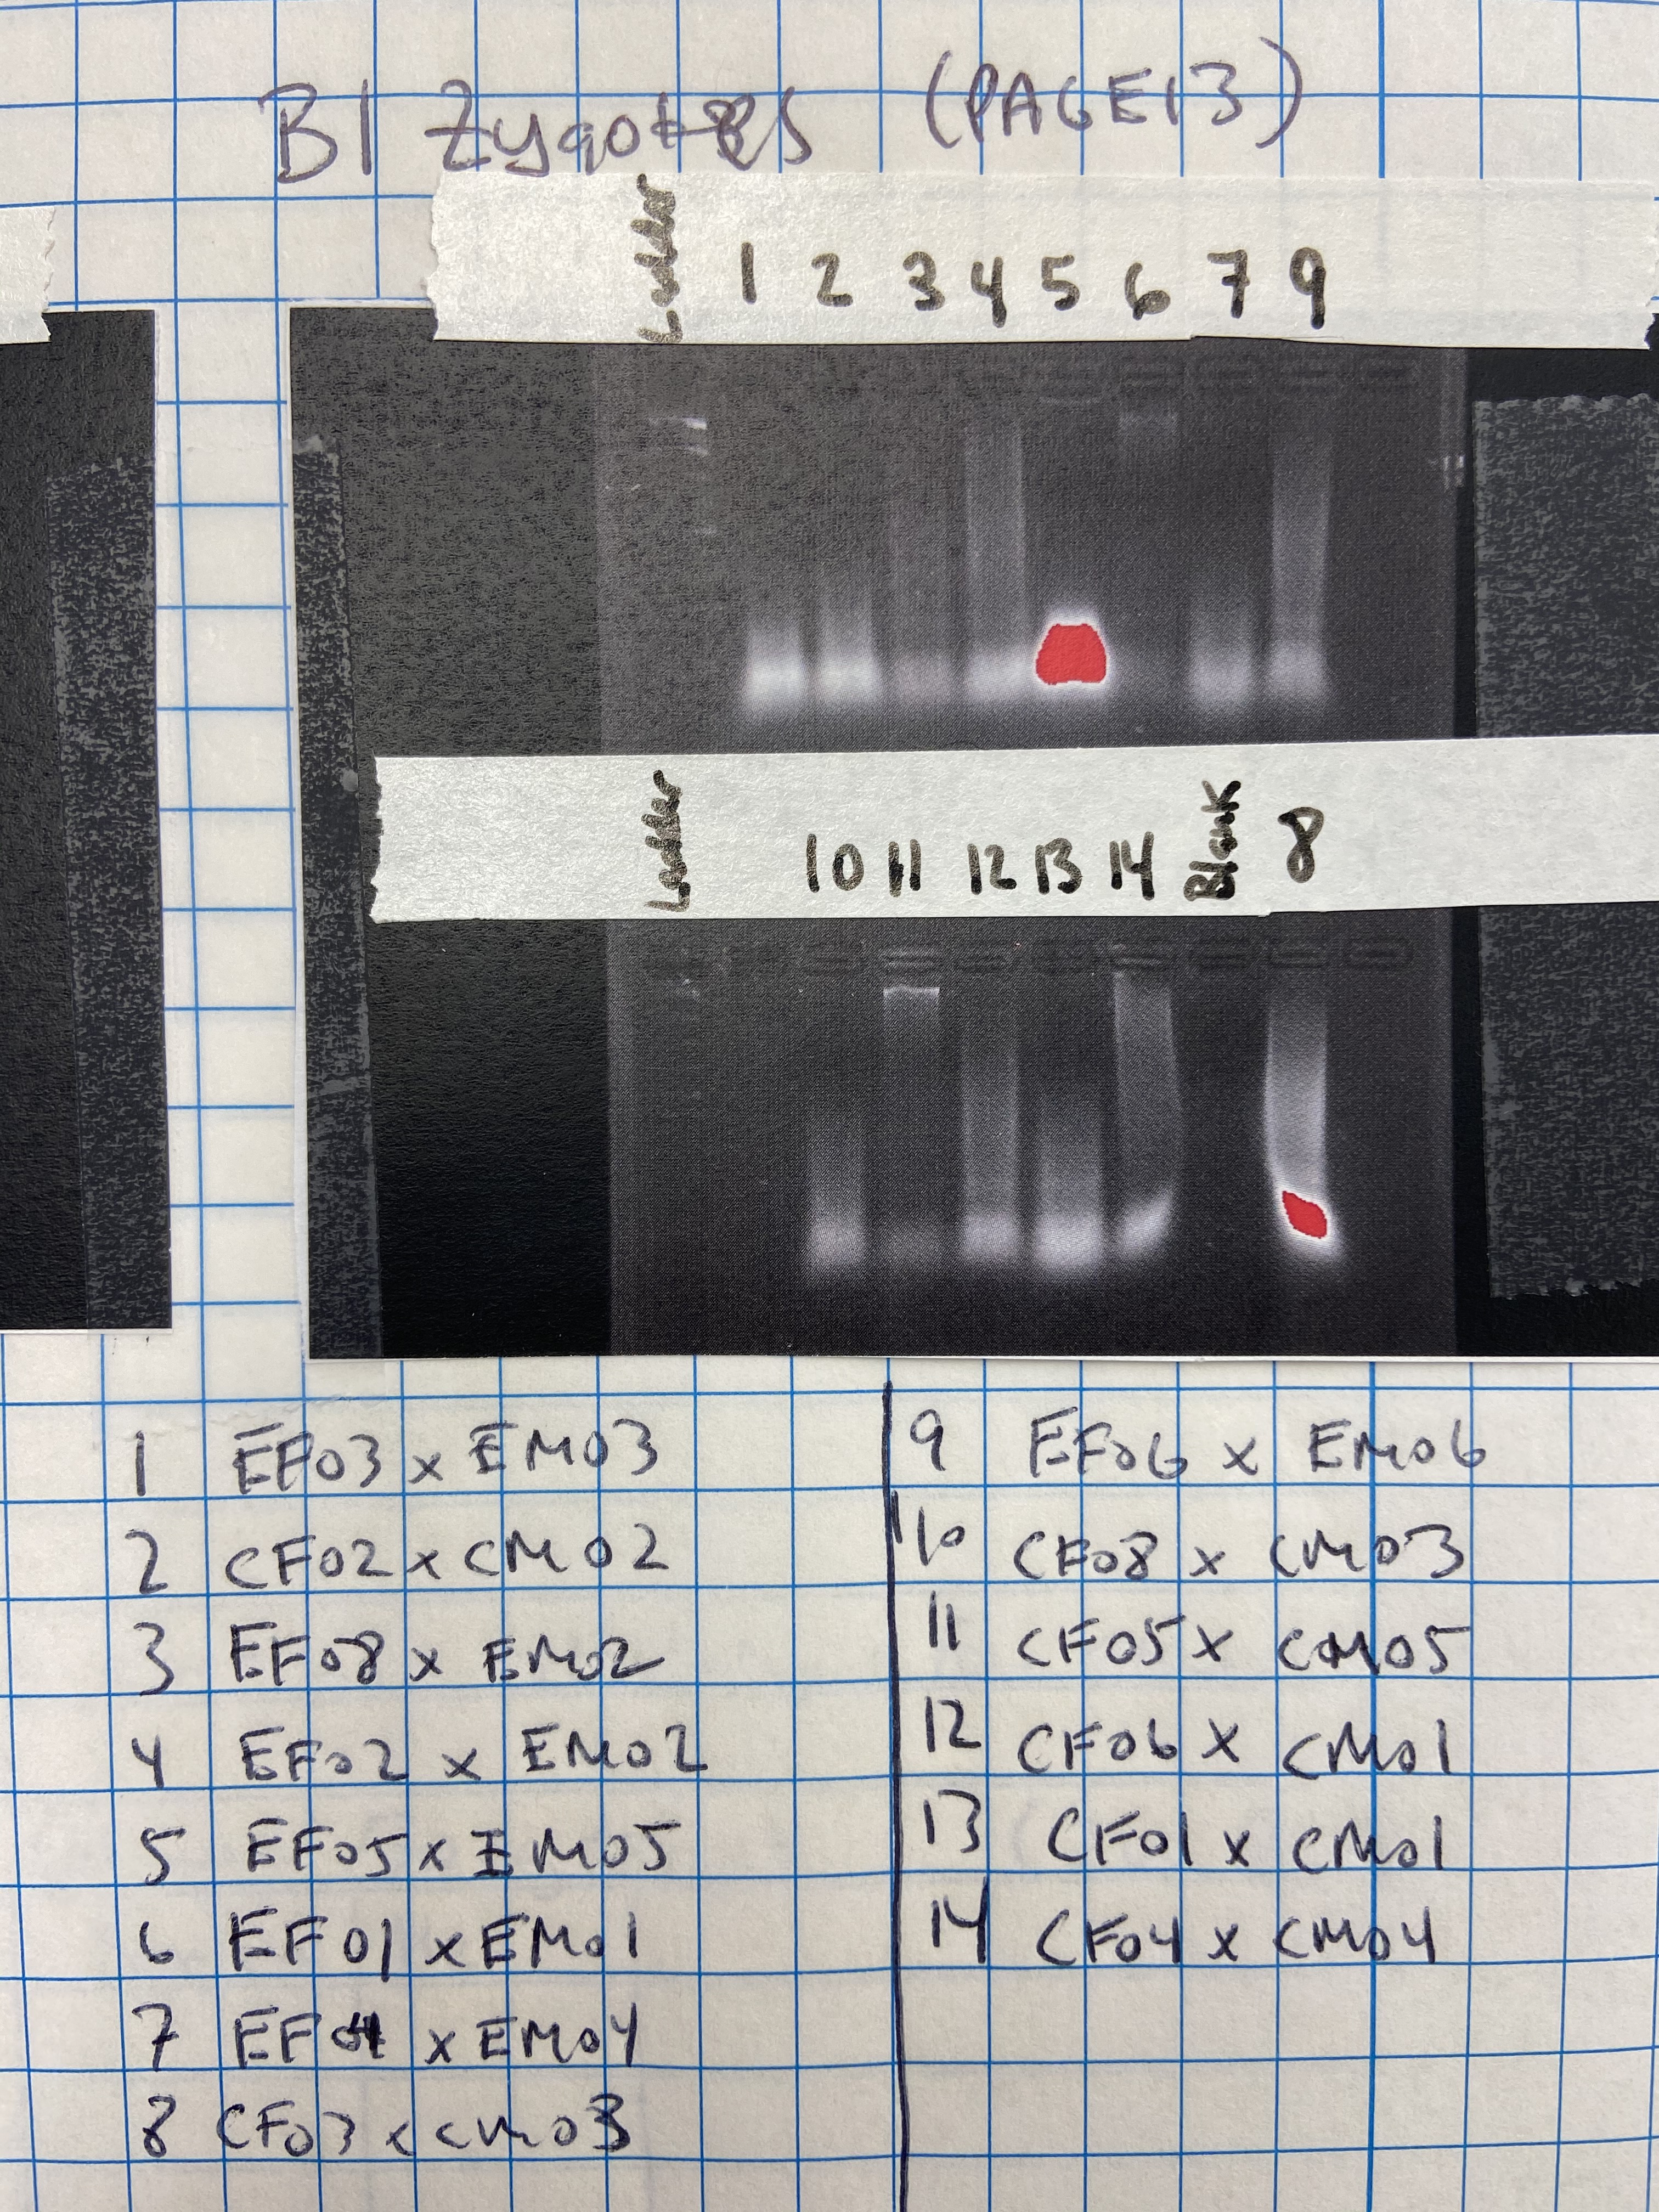 B1 Zygotes (PAGE13)
Ladder 1 2 3 4 5 6 7 9
Ladder 10 11 12 13 14 Blank 8
1 EF03 x EM03
2 CF02 x CM02
3 EF08 x EM02
4 EF02 x EM02
5 EF05 x EM05
6 EF01 x EM01
7 EF04 x EM04
8 CF03 x CM03
9 EF06 x EM06
10 CF08 x CM03
11 CF05 x CM05
12 CF06 x CM01
13 CF01 x CM01
14 CF04 x CM04